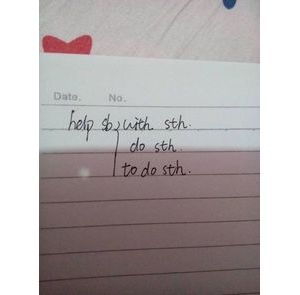 Date. No.
help sb with sth.
do sth.
to do sth.